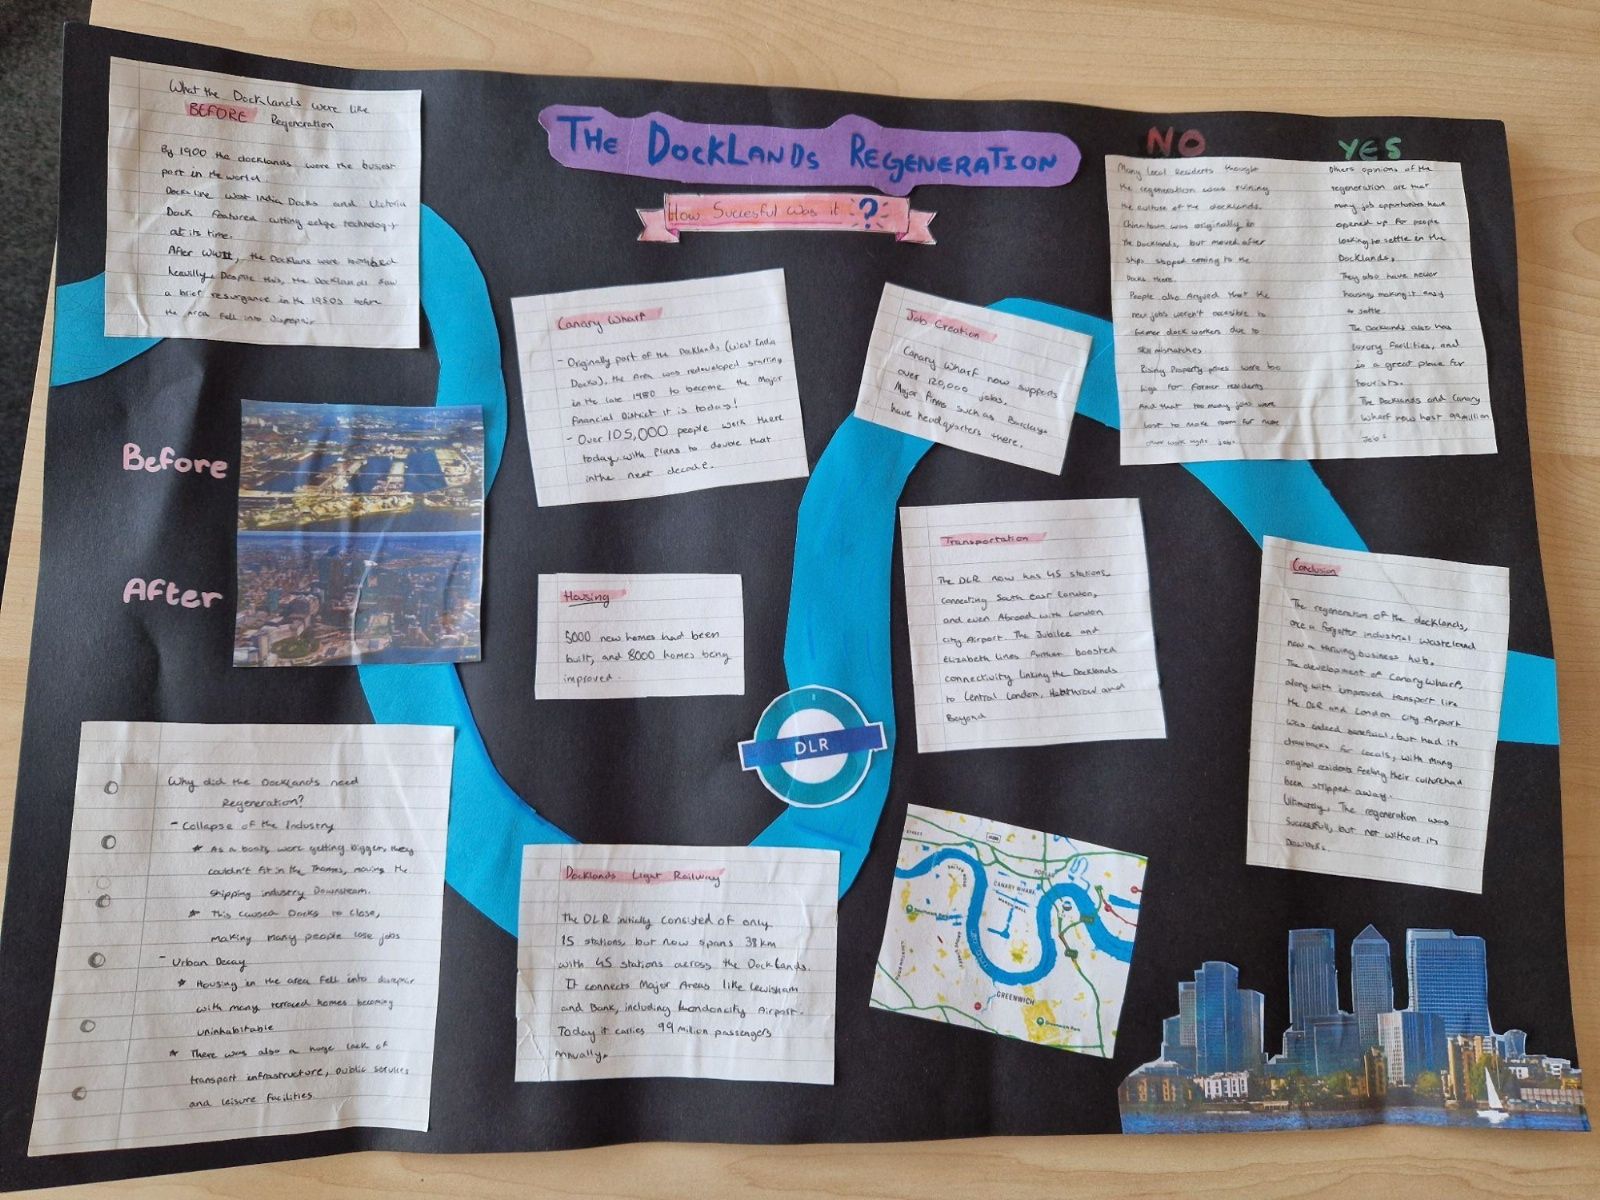 What the Docklands were like
BEFORE Regeneration
By 1900 the docklands were the busiest
port in the world.
Docks like West India Docks and Victoria
Dock featured cutting edge technology
at its time.
After WWII, the Docklans were bombed
heavilly. Despite this, the Docklands saw
a brief resurgance in the 1950s before
the area fell into disrepair
THE DOCKLANDS REGENERATION
How Succesful was it ?
NO
Many local residents thought
the regeneration was ruining
the culture of the docklands.
Chinatown was originally in
the Docklands, but moved after
ships stopped coming to the
Docks there.
People also Argued that the
new jobs weren't accesible to
former dock workers due to
skill mismatches
Rising Property prices were too
high for former residents
And that too many jobs were
lost to make room for more
jobs.
YES
Others opinions of the
regeneration are that
many job opportunites have
opened up for people
looking to settle in the
Docklands.
They also have newer
housing, making it easy
to settle.
The Docklands also has
luxury facilities, and
is a great place for
tourists.
The Docklands and Canary
Wharf now host 99 million
Jobs
Canary Wharf
- Originally part of the Docklands (West India
Docks), the Area was redeveloped starting
in the late 1980 to become the Major
Financial District it is today!
- Over 105,000 people work there
today, with plans to double that
in the next decade.
Job Creation
Canary Wharf now supports
over 120,000 jobs.
Major firms such as Barclays
have headquarters there.
Before
After
Housing
5000 new homes had been
built, and 8000 homes being
improved.
Transportation
The DLR now has 45 stations,
connecting South east London,
and even Abroad with London
city Airport. The Jubilee and
Elizabeth lines further boosted
connectivity linking the Docklands
to Central London, Heathrow and
Beyond
Conclusion
The regeneration of the docklands,
once a forgotten industrial wasteland
now a thriving business hub.
The development of Canary Wharf,
along with improved transport like
the DLR and London City Airport
was indeed beneficial, but had its
drawbacks for locals, with many
original residents feeling their culture had
been stripped away.
Ultimately, The regeneration was
Successful, but not without its
DLR
Why did the Docklands need
Regeneration?
- Collapse of the Industry
* As a boats were getting bigger, they
couldn't fit in the Thames, moving the
shipping industry Downstream.
* This caused Docks to close,
making many people lose jobs
- Urban Decay
* Housing in the area fell into disrepair
with many terraced homes becoming
uninhabitable
* There was also a huge lack of
transport infrastructure, public services
and leisure facilities
Docklands Light Railway
The DLR initially consisted of only
15 stations, but now spans 38km
with 45 stations across the Docklands.
It connects Major Areas like Lewisham
and Bank, including London city Airport.
Today it carries 99 million passengers
Annually.
STREET
POPLAR
CANARY WHARF
GREENWICH
Greenwich Park